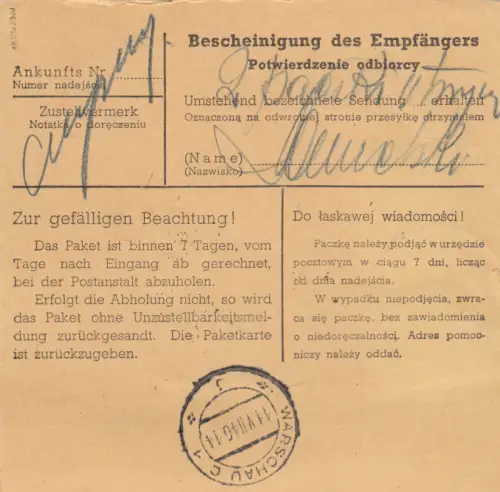 Bescheinigung des Empfängers
Potwierdzenie odbiorcy
Ankunfts Nr
Numer nadejścia
Umstehend bezeichnete Sendung erhalten
Oznaczoną na odwrotnej stronie przesyłkę otrzymałem
Zustellvermerk
Notatka o doręczeniu
(Name)
(Nazwisko)
Zur gefälligen Beachtung!
Das Paket ist binnen 7 Tagen, vom
Tage nach Eingang ab gerechnet,
bei der Postanstalt abzuholen.
Erfolgt die Abholung nicht, so wird
das Paket ohne Unzustellbarkeitsmel-
dung zurückgesandt. Die Paketkarte
ist zurückzugeben.
Do łaskawej wiadomości!
Paczkę należy podjąć w urzędzie
pocztowym w ciągu 7 dni, licząc
od dnia nadejścia.
W wypadku niepodjęcia, zwra-
ca się paczkę, bez zawiadomienia
o niedoręczalności. Adres pomoc-
niczy należy oddać.
WARSCHAU C 1